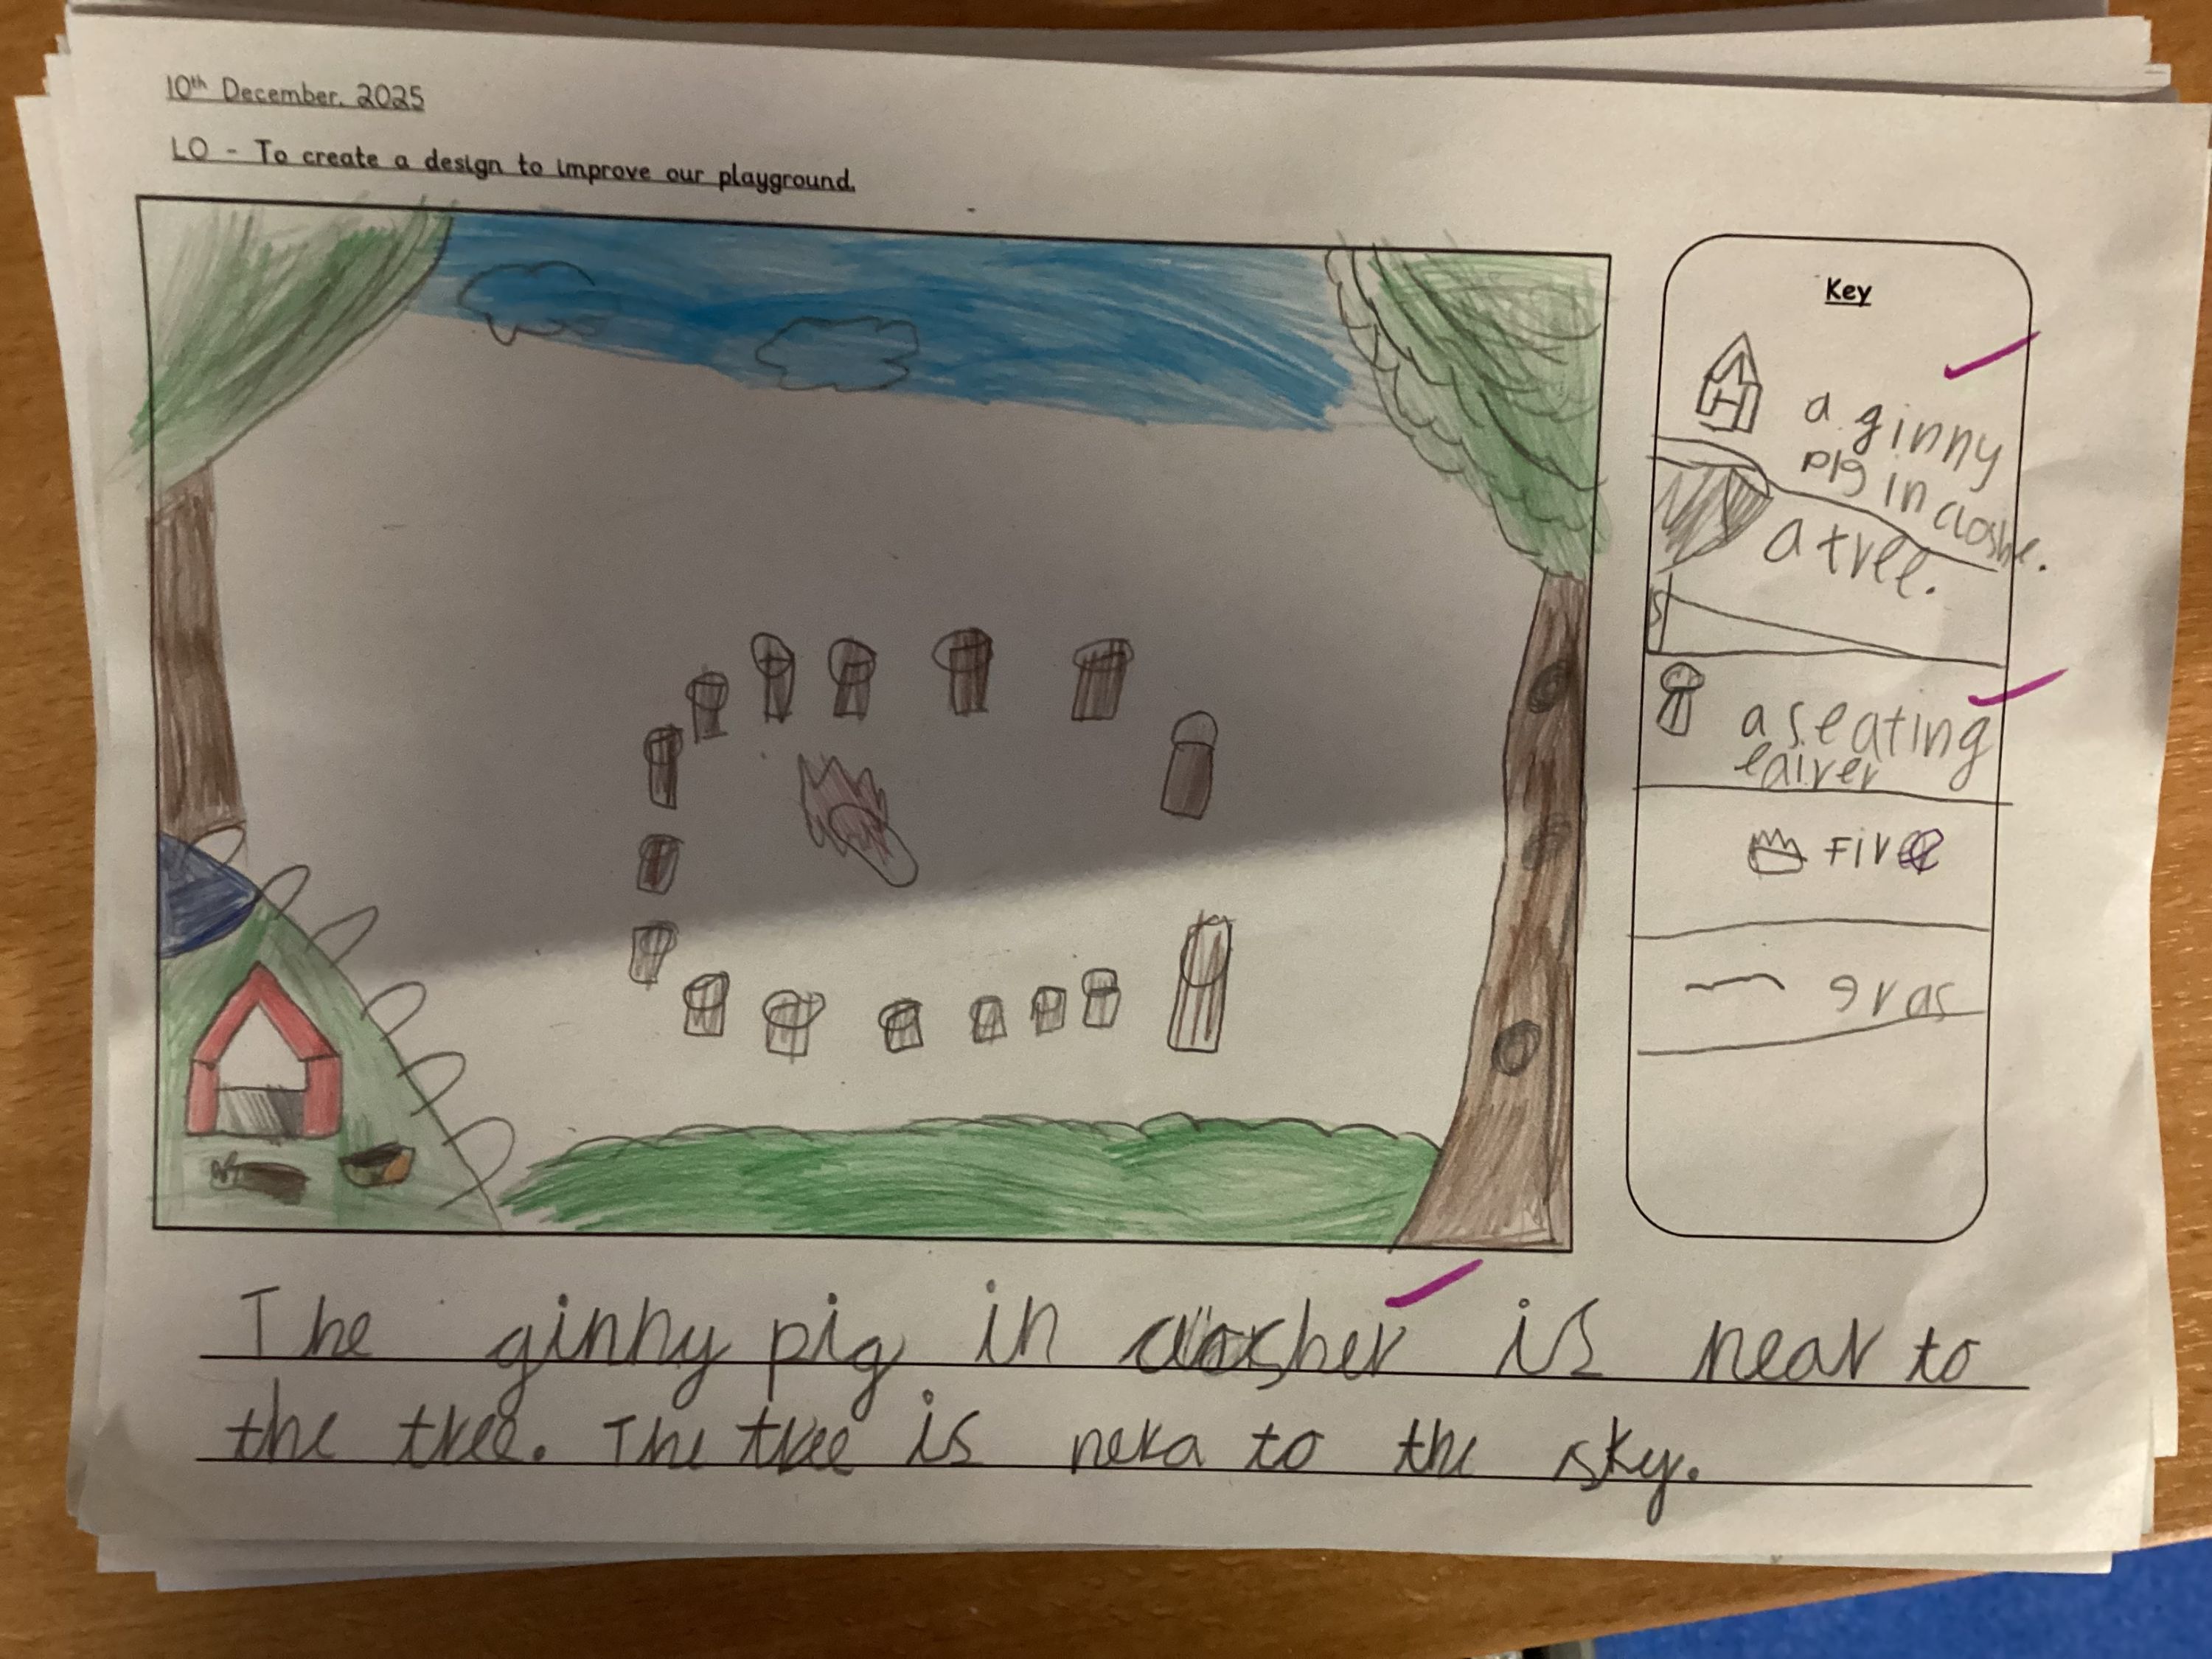 10th December, 2025
LO - To create a design to improve our playground.
Key
a ginny
pig in closhe.
a tree.
a seating
eairer
Fire
gras
The ginny pig in closher is near to
the tree. The tree is neka to the sky.